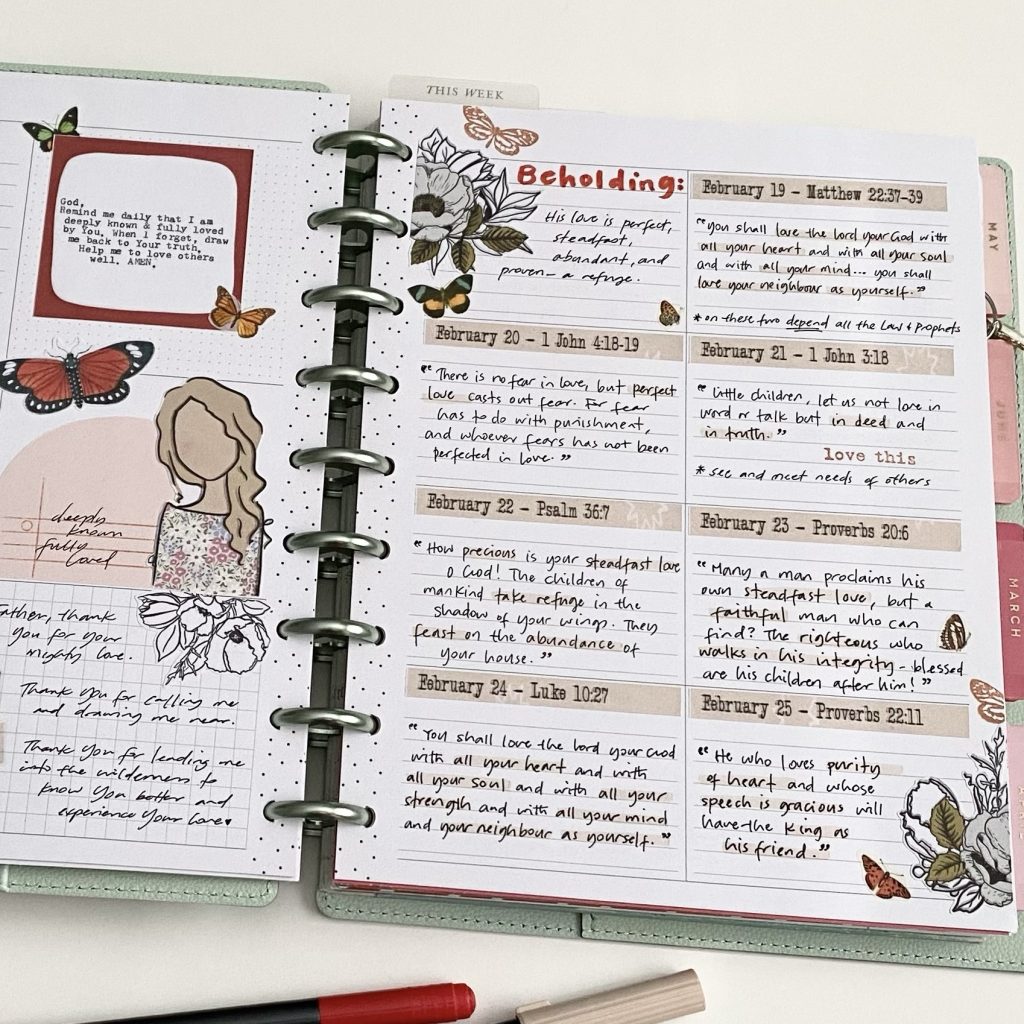 God,
Remind me daily that I am
deeply known & fully loved
by You. When I forget, draw
me back to Your truth.
Help me to love others
well. AMEN.
deeply
known
fully
loved
Father, thank
you for your
mighty love.
Thank you for calling me
and drawing me near.
Thank you for leading me
into the wilderness to
know you better and
experience your love♥
THIS WEEK
Beholding:
His love is perfect,
steadfast,
abundant, and
proven – a refuge.
February 19 – Matthew 22:37-39
"You shall love the lord your God with
all your heart and with all your soul
and with all your mind... you shall
love your neighbour as yourself."
* on these two depend all the Law & Prophets
February 20 – 1 John 4:18-19
"There is no fear in love, but perfect
love casts out fear. For fear
has to do with punishment,
and whoever fears has not been
perfected in love."
February 21 – 1 John 3:18
"Little children, let us not love in
word or talk but in deed and
in truth."
love this
* see and meet needs of others
February 22 – Psalm 36:7
"How precious is your steadfast love
O God! The children of
mankind take refuge in the
shadow of your wings. They
feast on the abundance of
your house."
February 23 – Proverbs 20:6
"Many a man proclaims his
own steadfast love, but a
faithful man who can
find? The righteous who
walks in his integrity – blessed
are his children after him!"
February 24 – Luke 10:27
"You shall love the lord your God
with all your heart and with
all your soul and with all your
strength and with all your mind
and your neighbour as yourself."
February 25 – Proverbs 22:11
"He who loves purity
of heart and whose
speech is gracious will
have the king as
his friend."
MAY
JUNE
MARCH